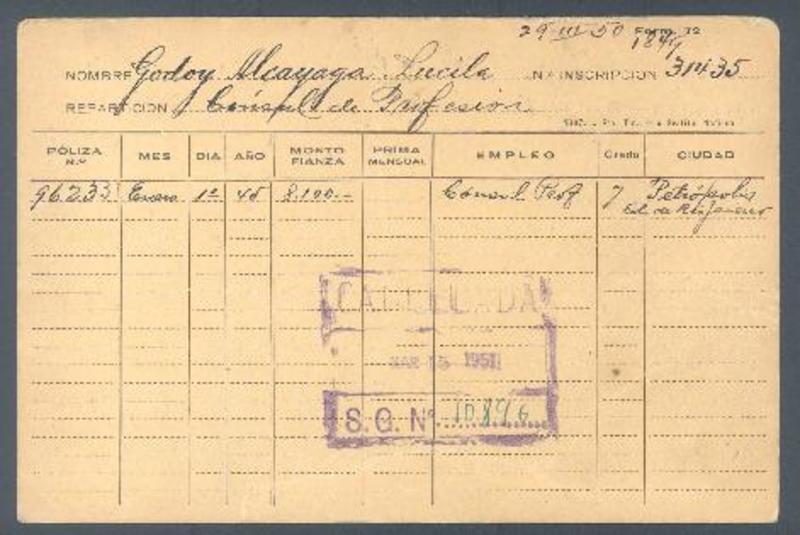 29-III-50 Form. 72
1849
NOMBRE Godoy Alcayaga Lucila N.º INSCRIPCION 31435
REPARTICION Cónsul de Profesión
POLIZA N.º MES DIA AÑO MONTO FIANZA PRIMA MENSUAL EMPLEO Grado CIUDAD
96233 Enero 1º 45 2.100.- Cónsul Prof 7 Petrópolis
Est. de Rio Janeiro
CANCELADA
MAR 15 1951
S. G. Nº. 10896